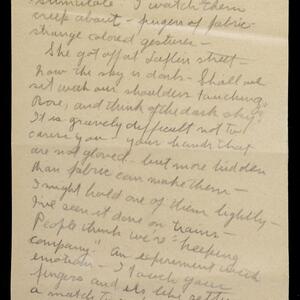 stimulate I watch them
creep about - fingers of fabric -
strange colored gestures -
She got off at street -
how the sky is dark - Shall we
sit with our shoulders touching
Rose, and think of the dark sky?
It is gravely difficult not to
caress you - your hands that
are not gloved - but more hidden
than fabric can make them -
I might hold one of them lightly -
I've seen it done on trains -
People think we're "keeping
company." An experiment with
emotion - I touch your
fingers and its like
a match